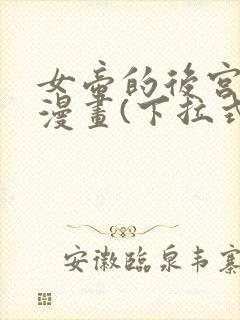 女帝的後宮
漫畫(下拉式
安徽臨泉韦寨